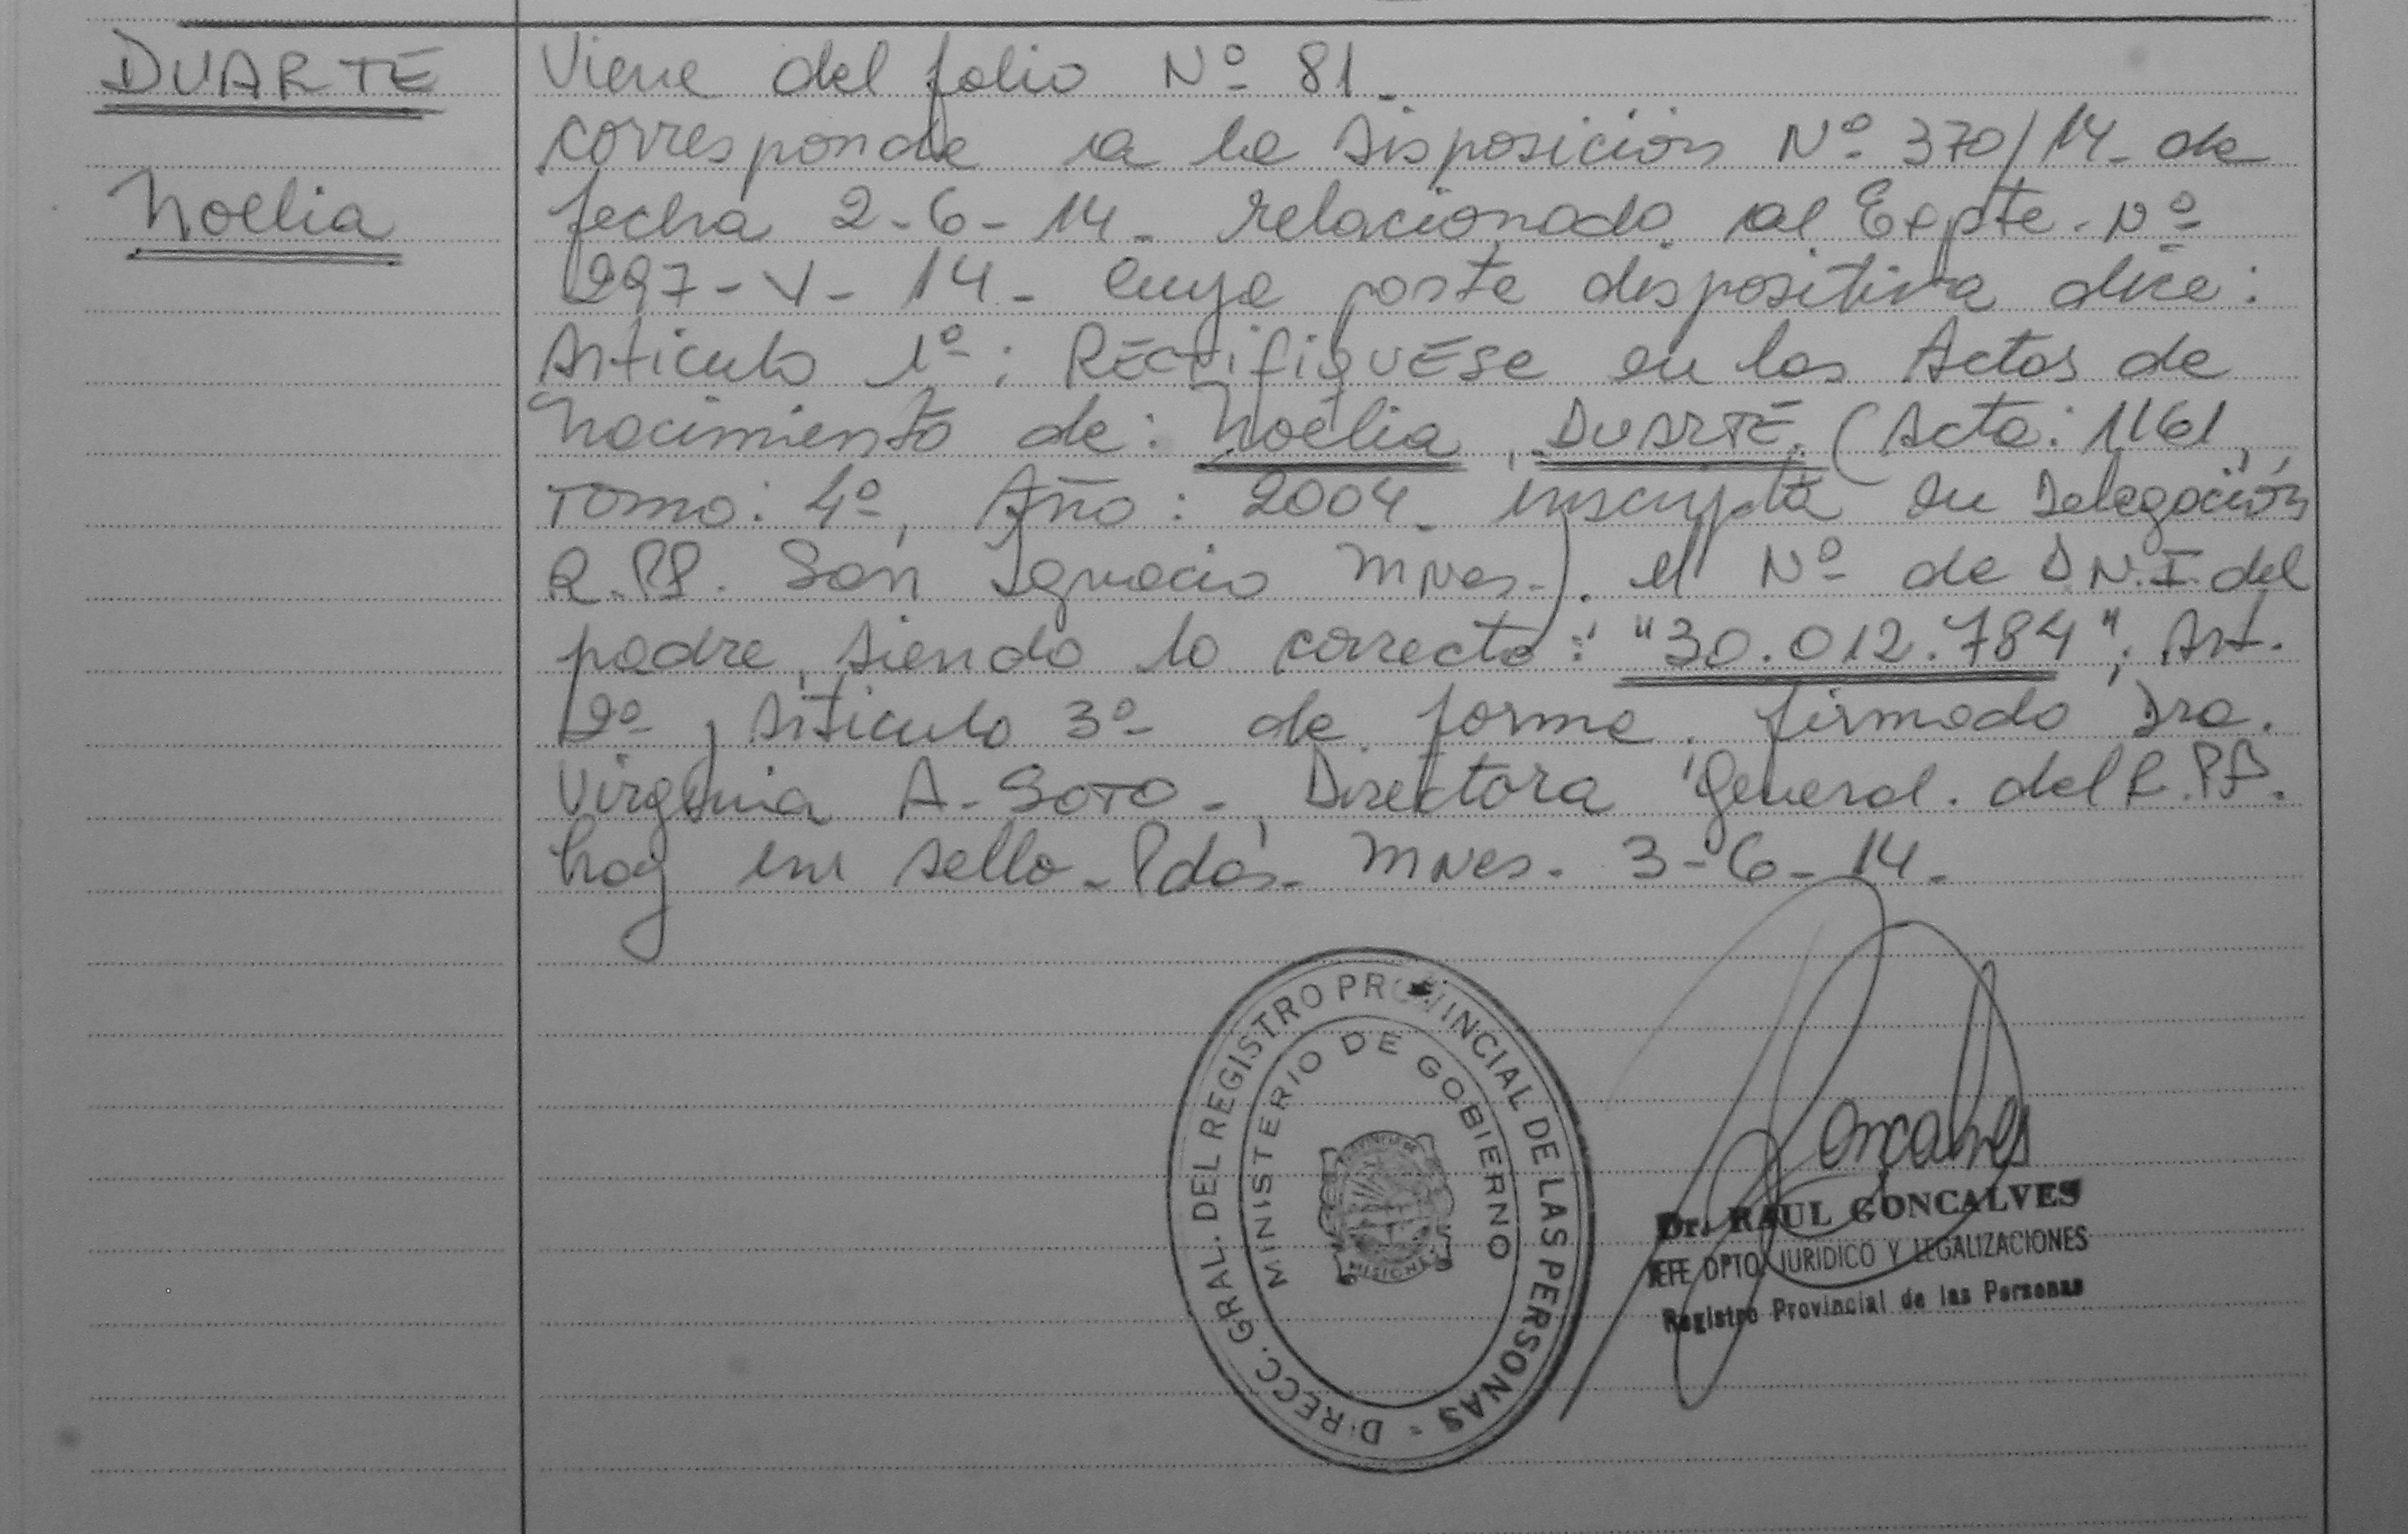 DUARTE
Noelia
Viene del folio Nº 81-
corresponde a la Disposición Nº 370/14- de
fecha 2-6-14- relacionado al Expte. Nº
297-V-14- cuya parte dispositiva dice:
Articulo 1º: RECtifiquESe en las Actas de
Nacimiento de: Noelia DUARTE. (Acta: 1161,
Tomo: 4º, Año: 2004- inscripta en Delegación
R.PP. San Ignacio Mnes-). el Nº de D.N.I. del
padre, siendo lo correcto: "30.012.784"; Art.
2º y Articulo 3º de forma. firmado Dra.
Virginia A. SOTO- Directora General. del R.PP.
hay un sello- Pdas- Mnes- 3-6-14-
DIRECC. GRAL. DEL REGISTRO PROVINCIAL DE LAS PERSONAS -
MINISTERIO DE GOBIERNO
PROVINCIA DE
MISIONES
Goncalves
Dr. RAUL GONCALVES
JEFE DPTO JURIDICO Y LEGALIZACIONES
Registro Provincial de las Personas